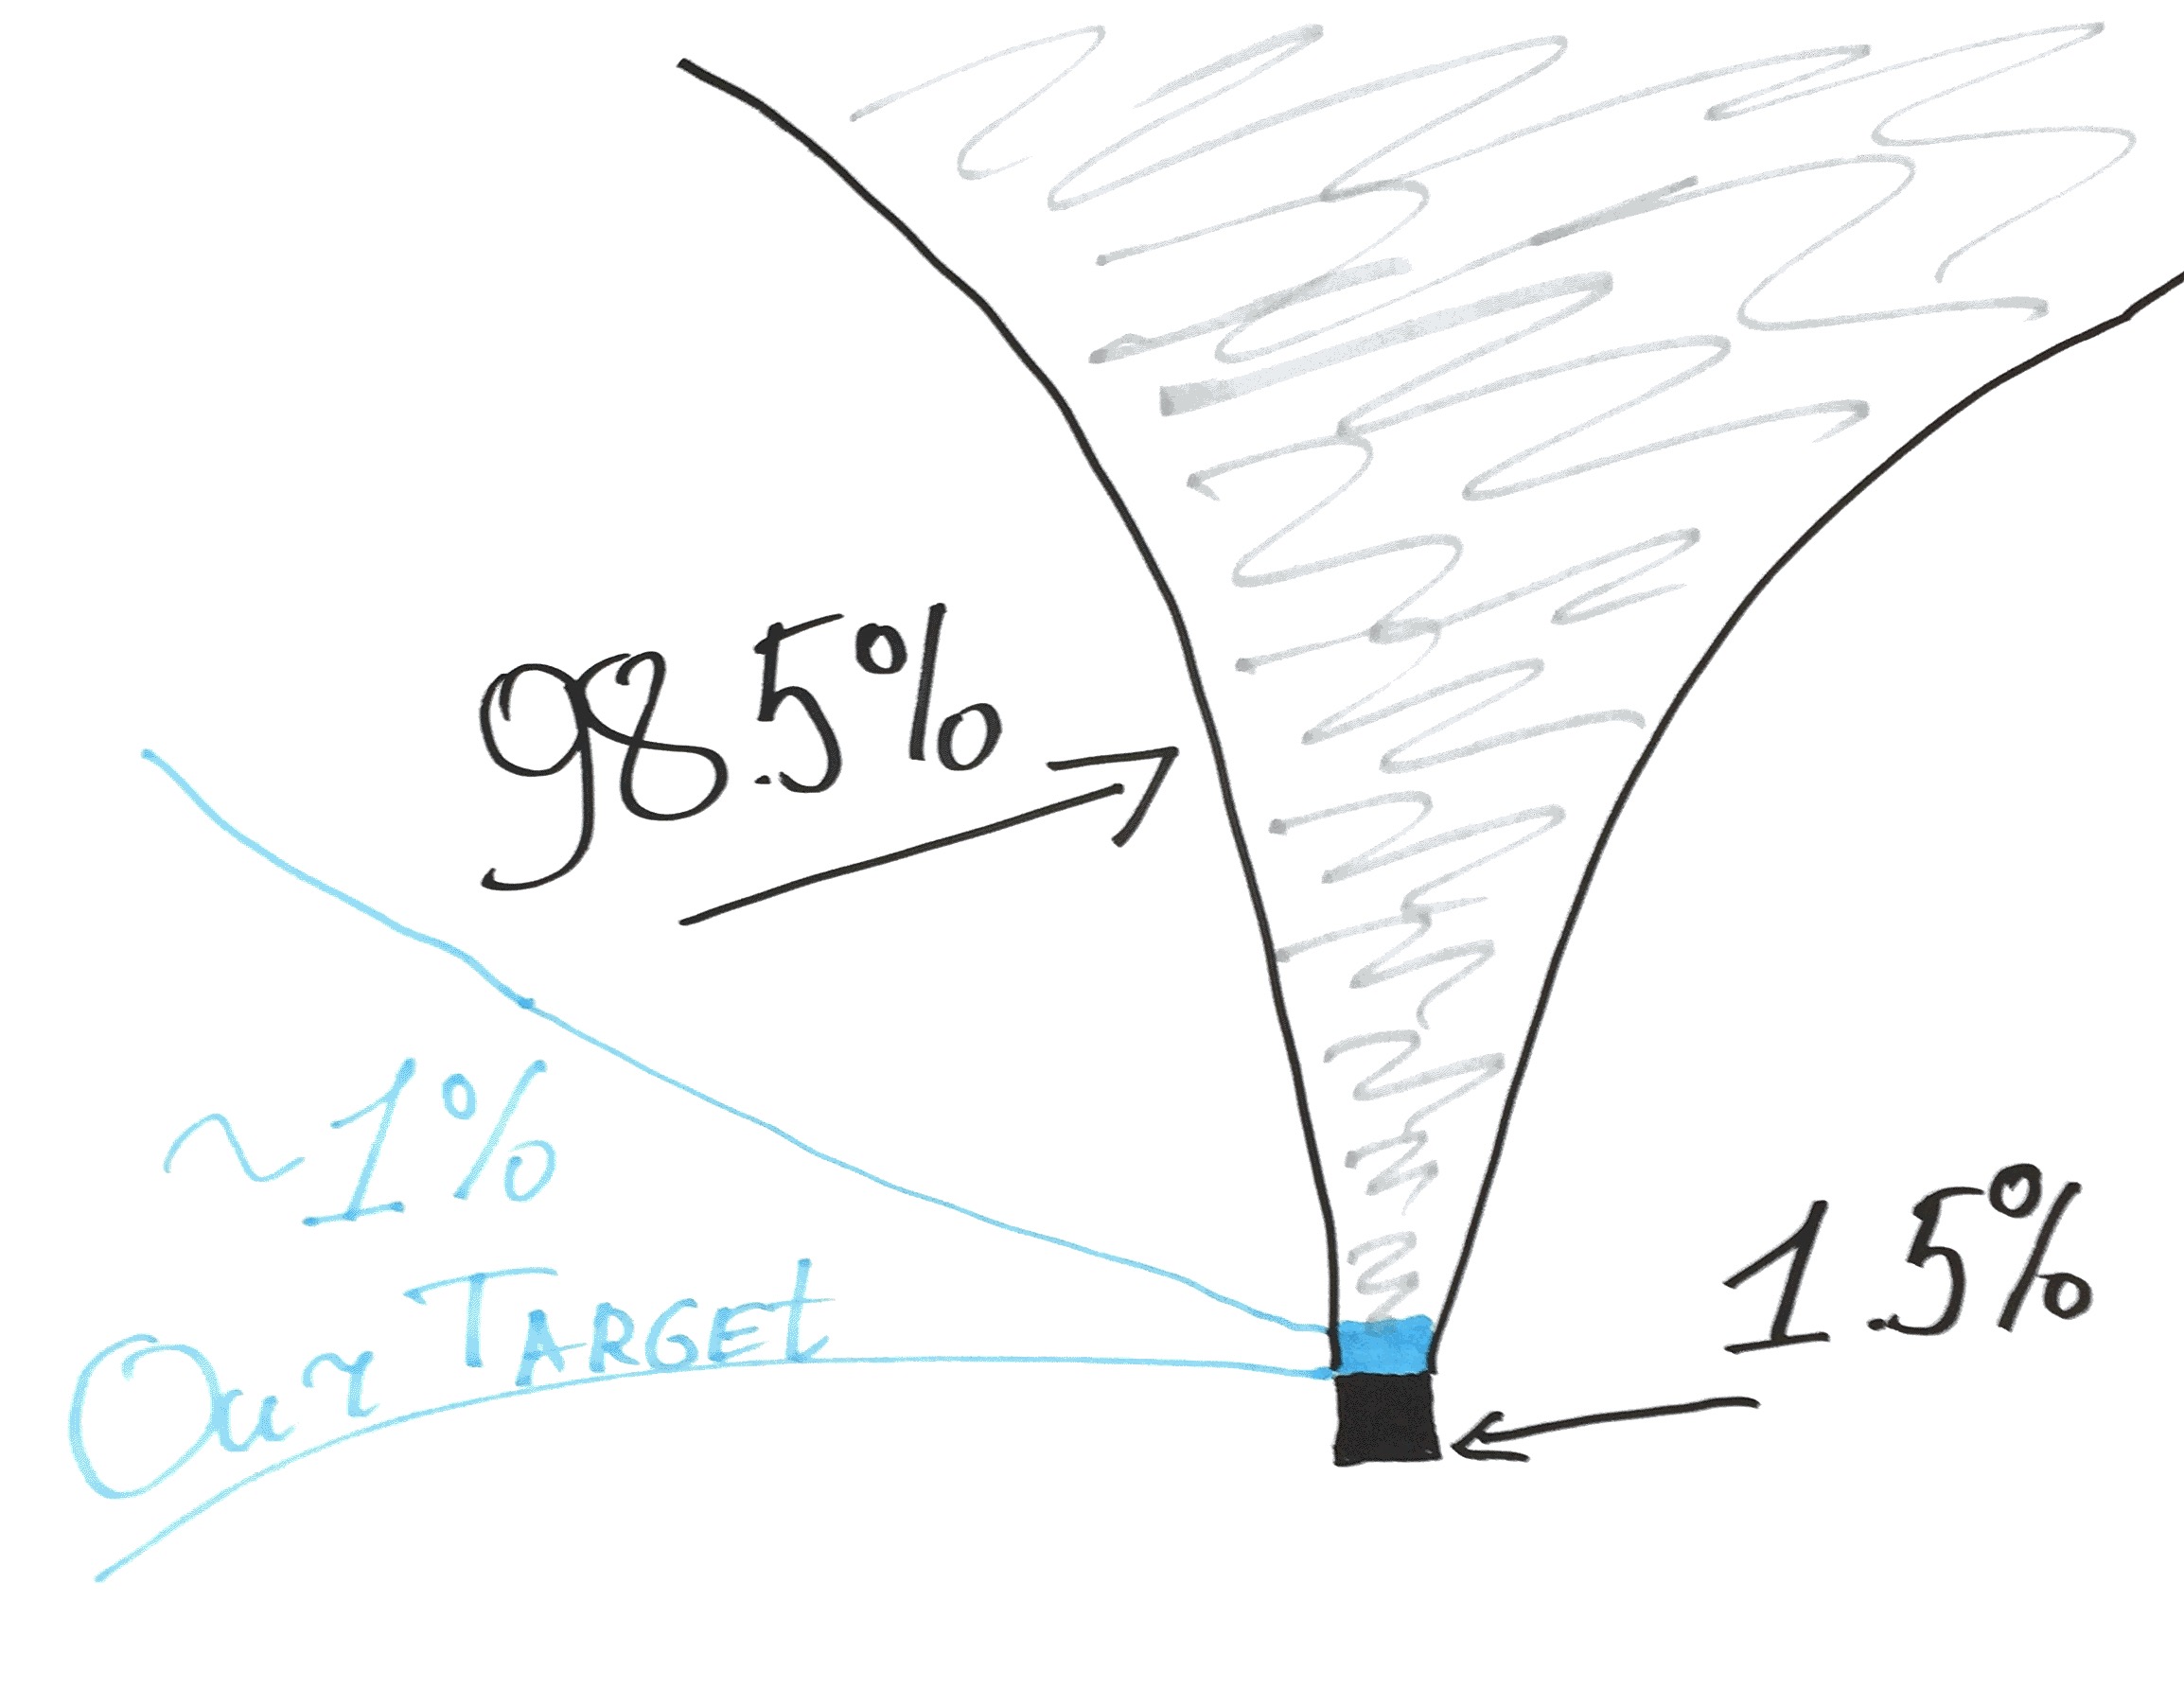 98.5%
~1%
Our TARGEt
1.5%